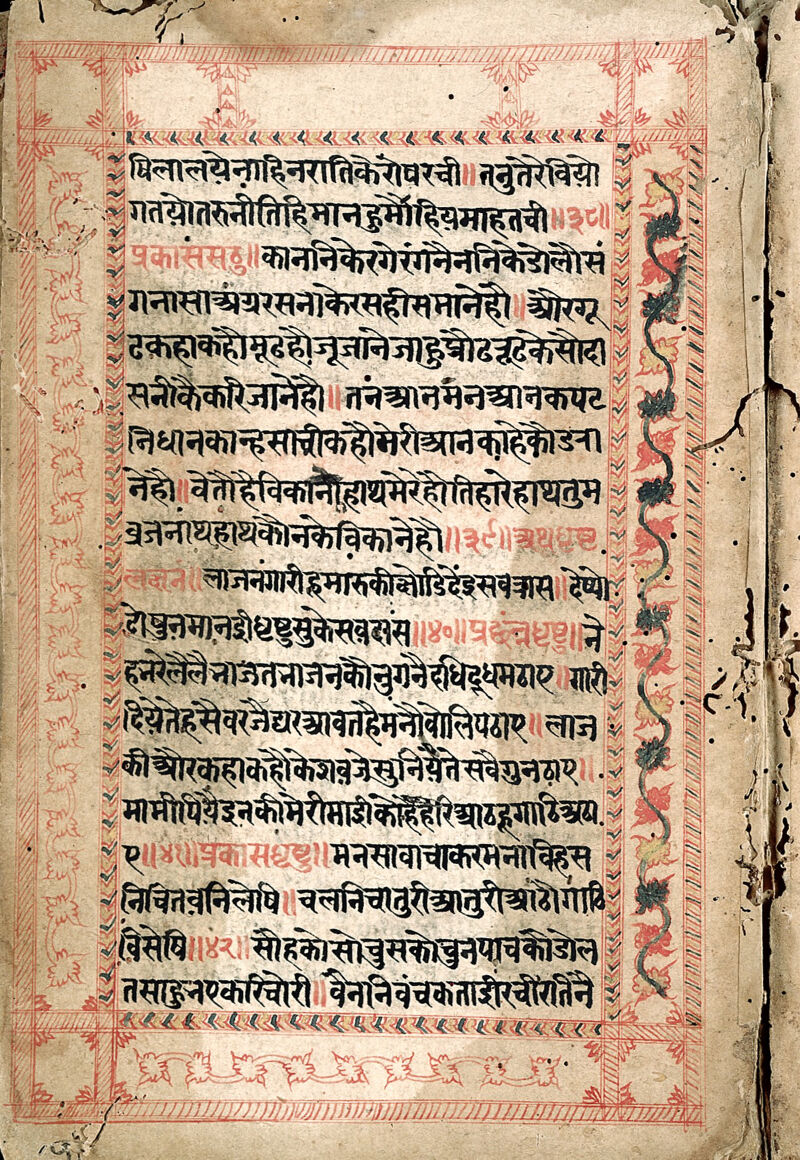 षिलालयेनाहिनरातिकैरोषरची॥तनुतेरेवियो
गतयोतरुनीतिहिमानहुमोहियमाहतची॥३८॥
प्रकाससठ॥काननिकेरगेरंगनैननिकेडोलौसं
गनासाअग्ररसनाकेरसहीसमानेहौ॥औरगू
ढकहाकहौमूढहौजूजानेजाहुप्रौढरूढकेसौदा
सनीकैकरिजानेहौ॥तनआनमनआनकपट
निधानकान्हसाचीकहौमेरीआनकाहेकौडरा
नेहौ॥वेतौहैविकानीहाथमेरेहौतिहारेहाथतुम
व्रजनाथहाथकौनकेविकानेहौ॥३९॥अथधृष्ट
लछन॥लाजनगारीहुमारुकीछोडिदेइसबत्रास॥देष्यौ
दोषुनमानइीधृष्टुसुकेसवदास॥४०॥प्रछंनधृष्टु॥ने
हनरेलैलैभाजतभाजनकौनुगनैदधिदूधमठाए॥गारी
दियेतेहसैवरजैघरआवतहैमनौवोलिपठाए॥लाज
कीऔरकहाकहौकेशवजेसुनियैतेसवैगुनठाए॥
मामीपियैइनकीमेरीमाइीकोहैहरिआठहूगाठिअठा
ए॥४१॥प्रकासधृष्टु॥मनसावाचाकरमनाविहस
निचितवनिलेषि॥चलनिचातुरीआतुरीआठौगाठि
विसेषि॥४२॥सौहकोसोचुसकोचुनपाचकौडोल
तसाहुनएकरिचोरी॥वैननिवंचकताइीरचीरतिनै